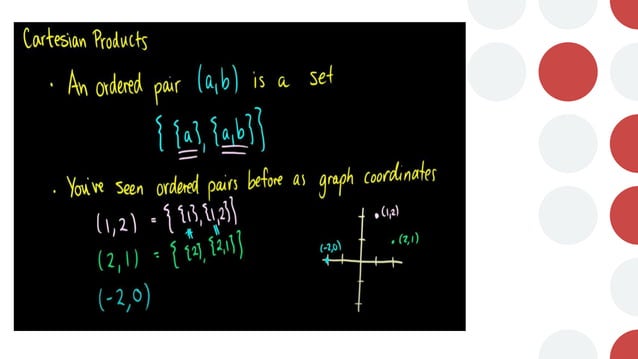 Cartesian Products
· An ordered pair (a,b) is a set
{ {a}, {a,b}}
· You've seen ordered pairs before as graph coordinates
(1,2) = { {1},{1,2}}
(2,1) = { {2}, {2,1}}
(-2,0)
·(1,2)
·(2,1)
(-2,0)